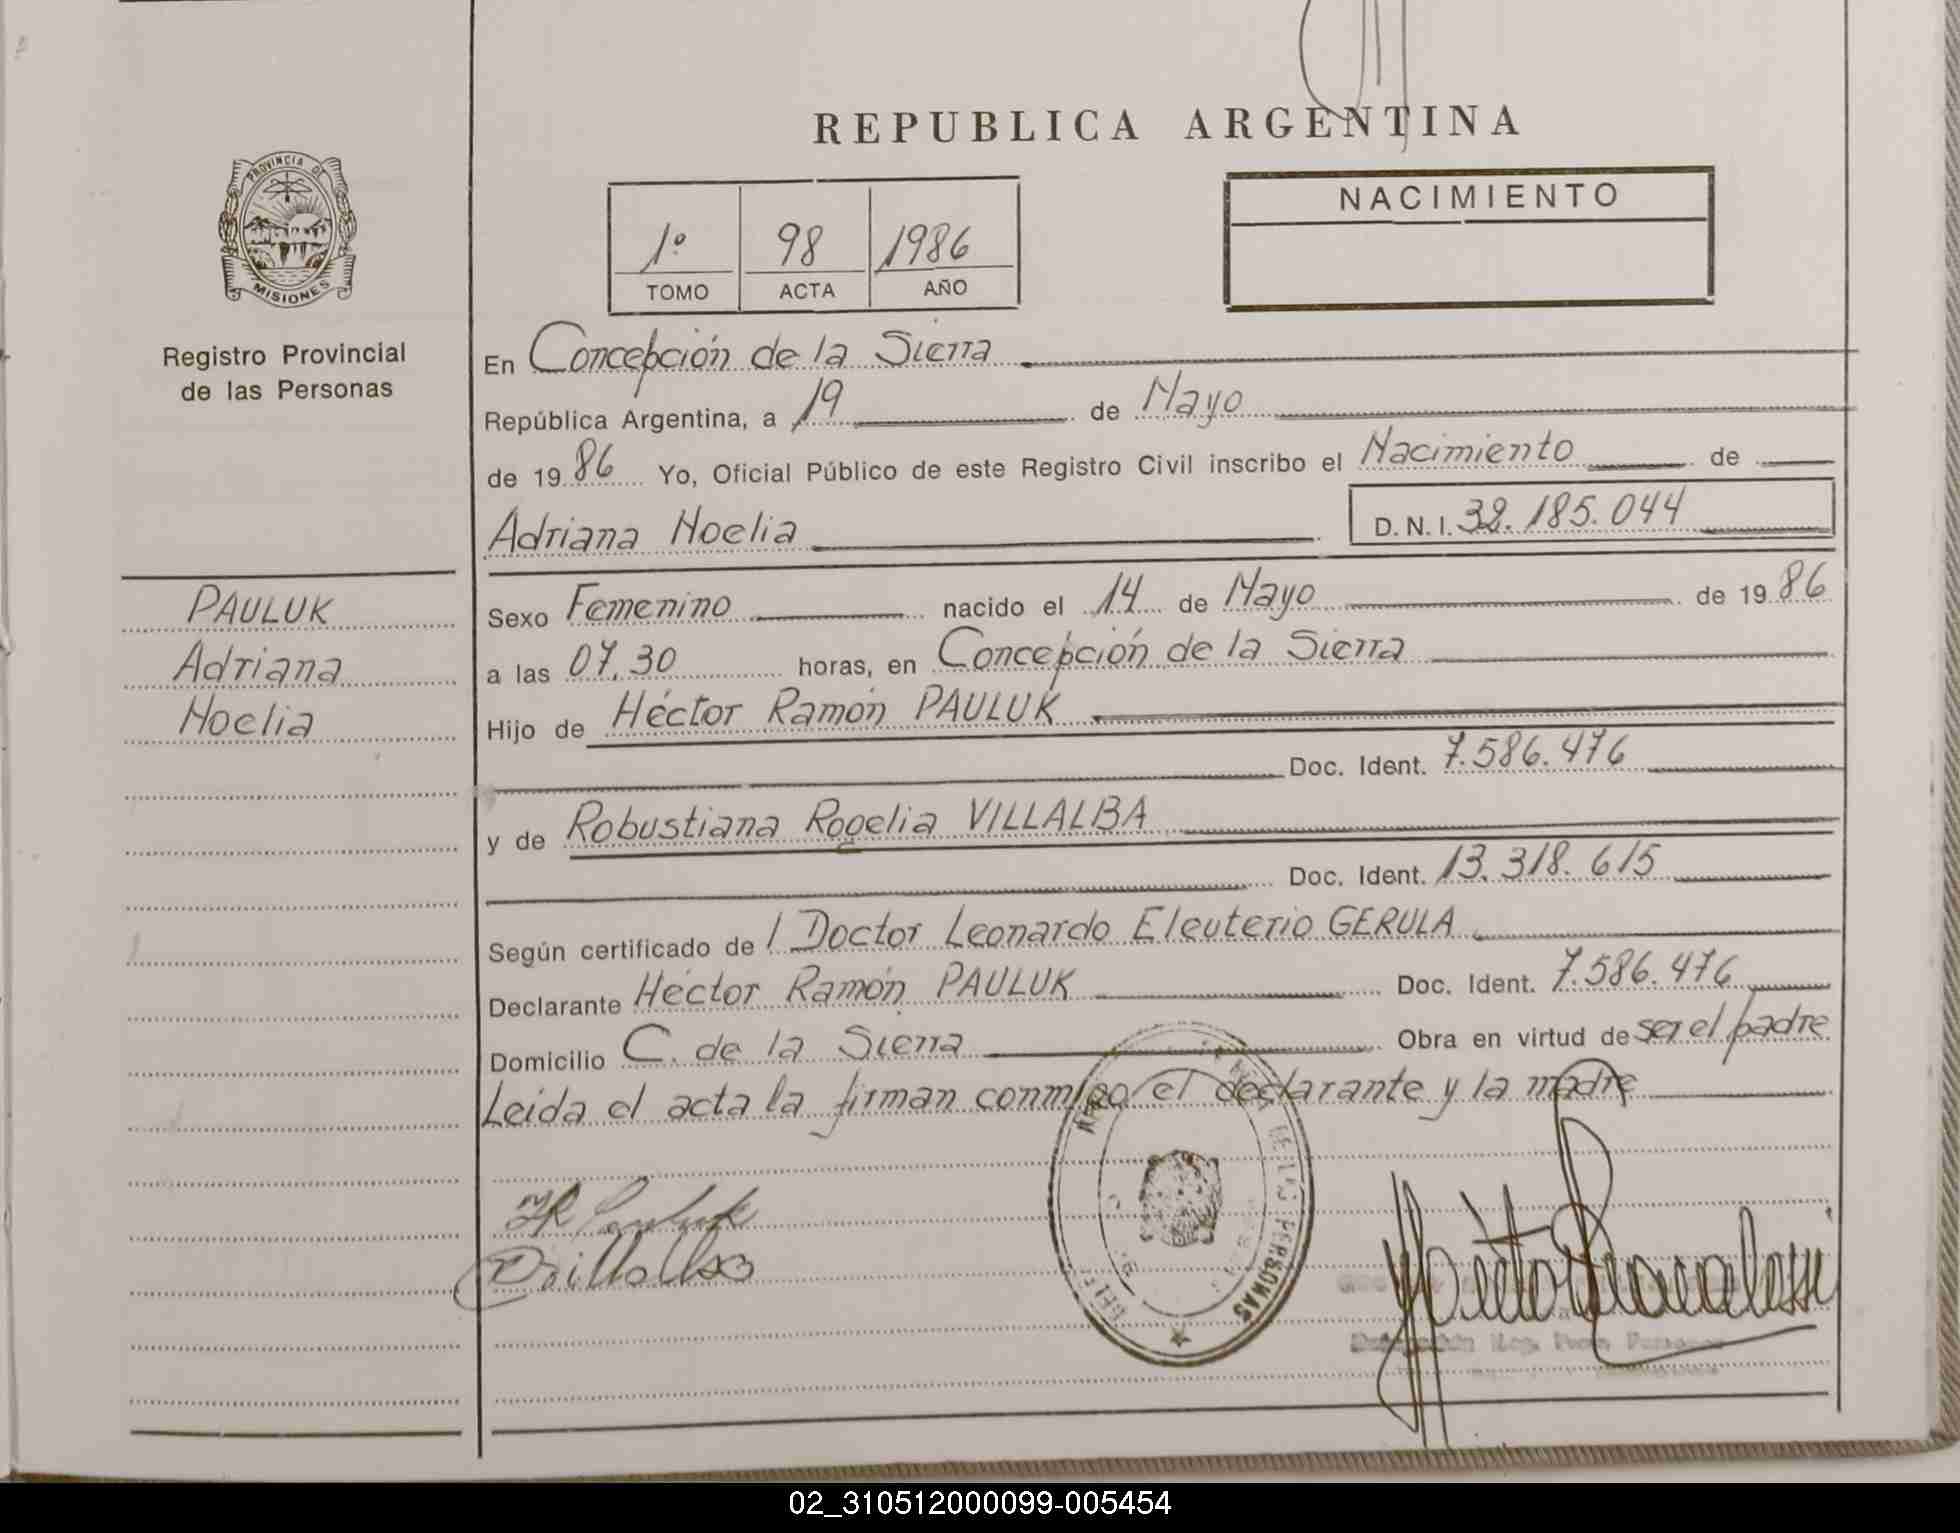 REPUBLICA ARGENTINA
PROVINCIA DE
MISIONES
Registro Provincial
de las Personas
1º 98 1986
TOMO ACTA AÑO
NACIMIENTO
En Concepción de la Sierra
República Argentina, a 19 de Mayo
de 1986 Yo, Oficial Público de este Registro Civil inscribo el Nacimiento de
Adriana Noelia D. N. I. 32.185.044
PAULUK
Adriana
Noelia
Sexo Femenino nacido el 14 de Mayo de 1986
a las 07,30 horas, en Concepción de la Sierra
Hijo de Héctor Ramón PAULUK
Doc. Ident. 7.586.476
y de Robustiana Rogelia VILLALBA
Doc. Ident. 13.318.615
Según certificado de l Doctor Leonardo Eleuterio GERULA
Declarante Héctor Ramón PAULUK Doc. Ident. 7.586.476
Domicilio C. de la Sierra Obra en virtud de ser el padre
Leida el acta la firman conmigo el declarante y la madre
HR Pauluk
DE LAS PERSONAS
02_310512000099-005454